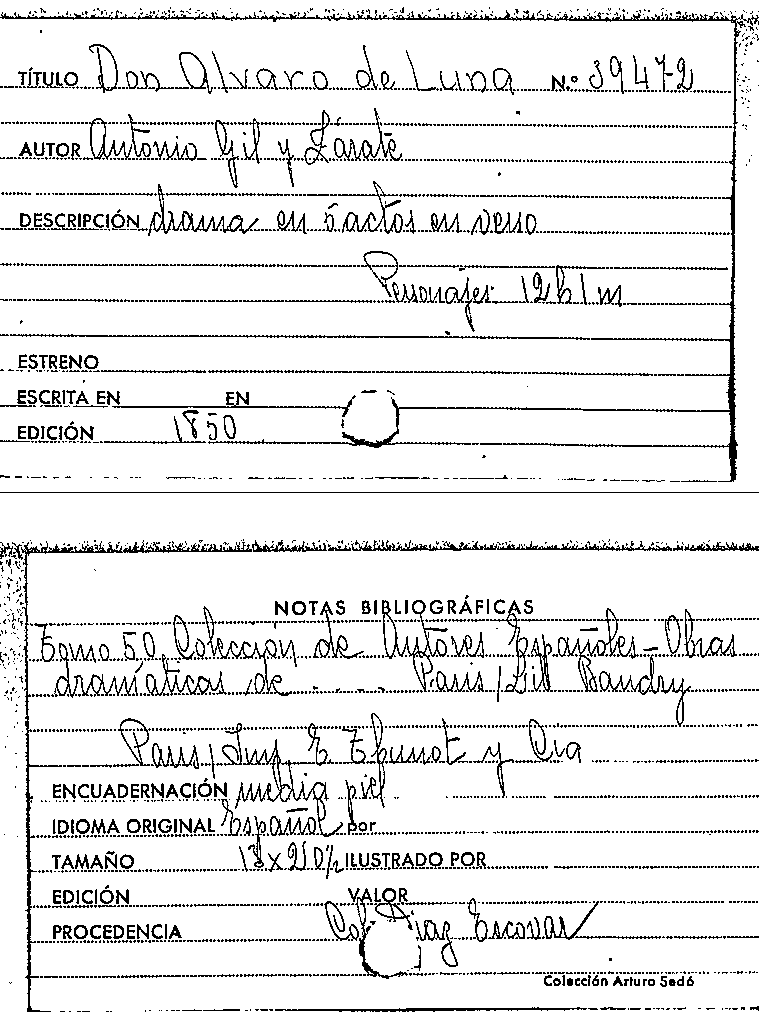 TÍTULO Don Alvaro de Luna N.º 39472
AUTOR Antonio Gil y Zárate
DESCRIPCIÓN drama en 5 actos en verso
Personajes: 12 h 1 m
ESTRENO
ESCRITA EN EN
EDICIÓN 1850
NOTAS BIBLIOGRÁFICAS
Tomo 50 Colección de Autores Españoles - Obras
dramáticas de .... Paris / Lib Baudry
Paris / Imp. E Thunot y Cia
ENCUADERNACIÓN media piel
IDIOMA ORIGINAL Español por
TAMAÑO ILUSTRADO POR
EDICIÓN VALOR
PROCEDENCIA Col. Diaz Escovar
Colección Arturo Sedó